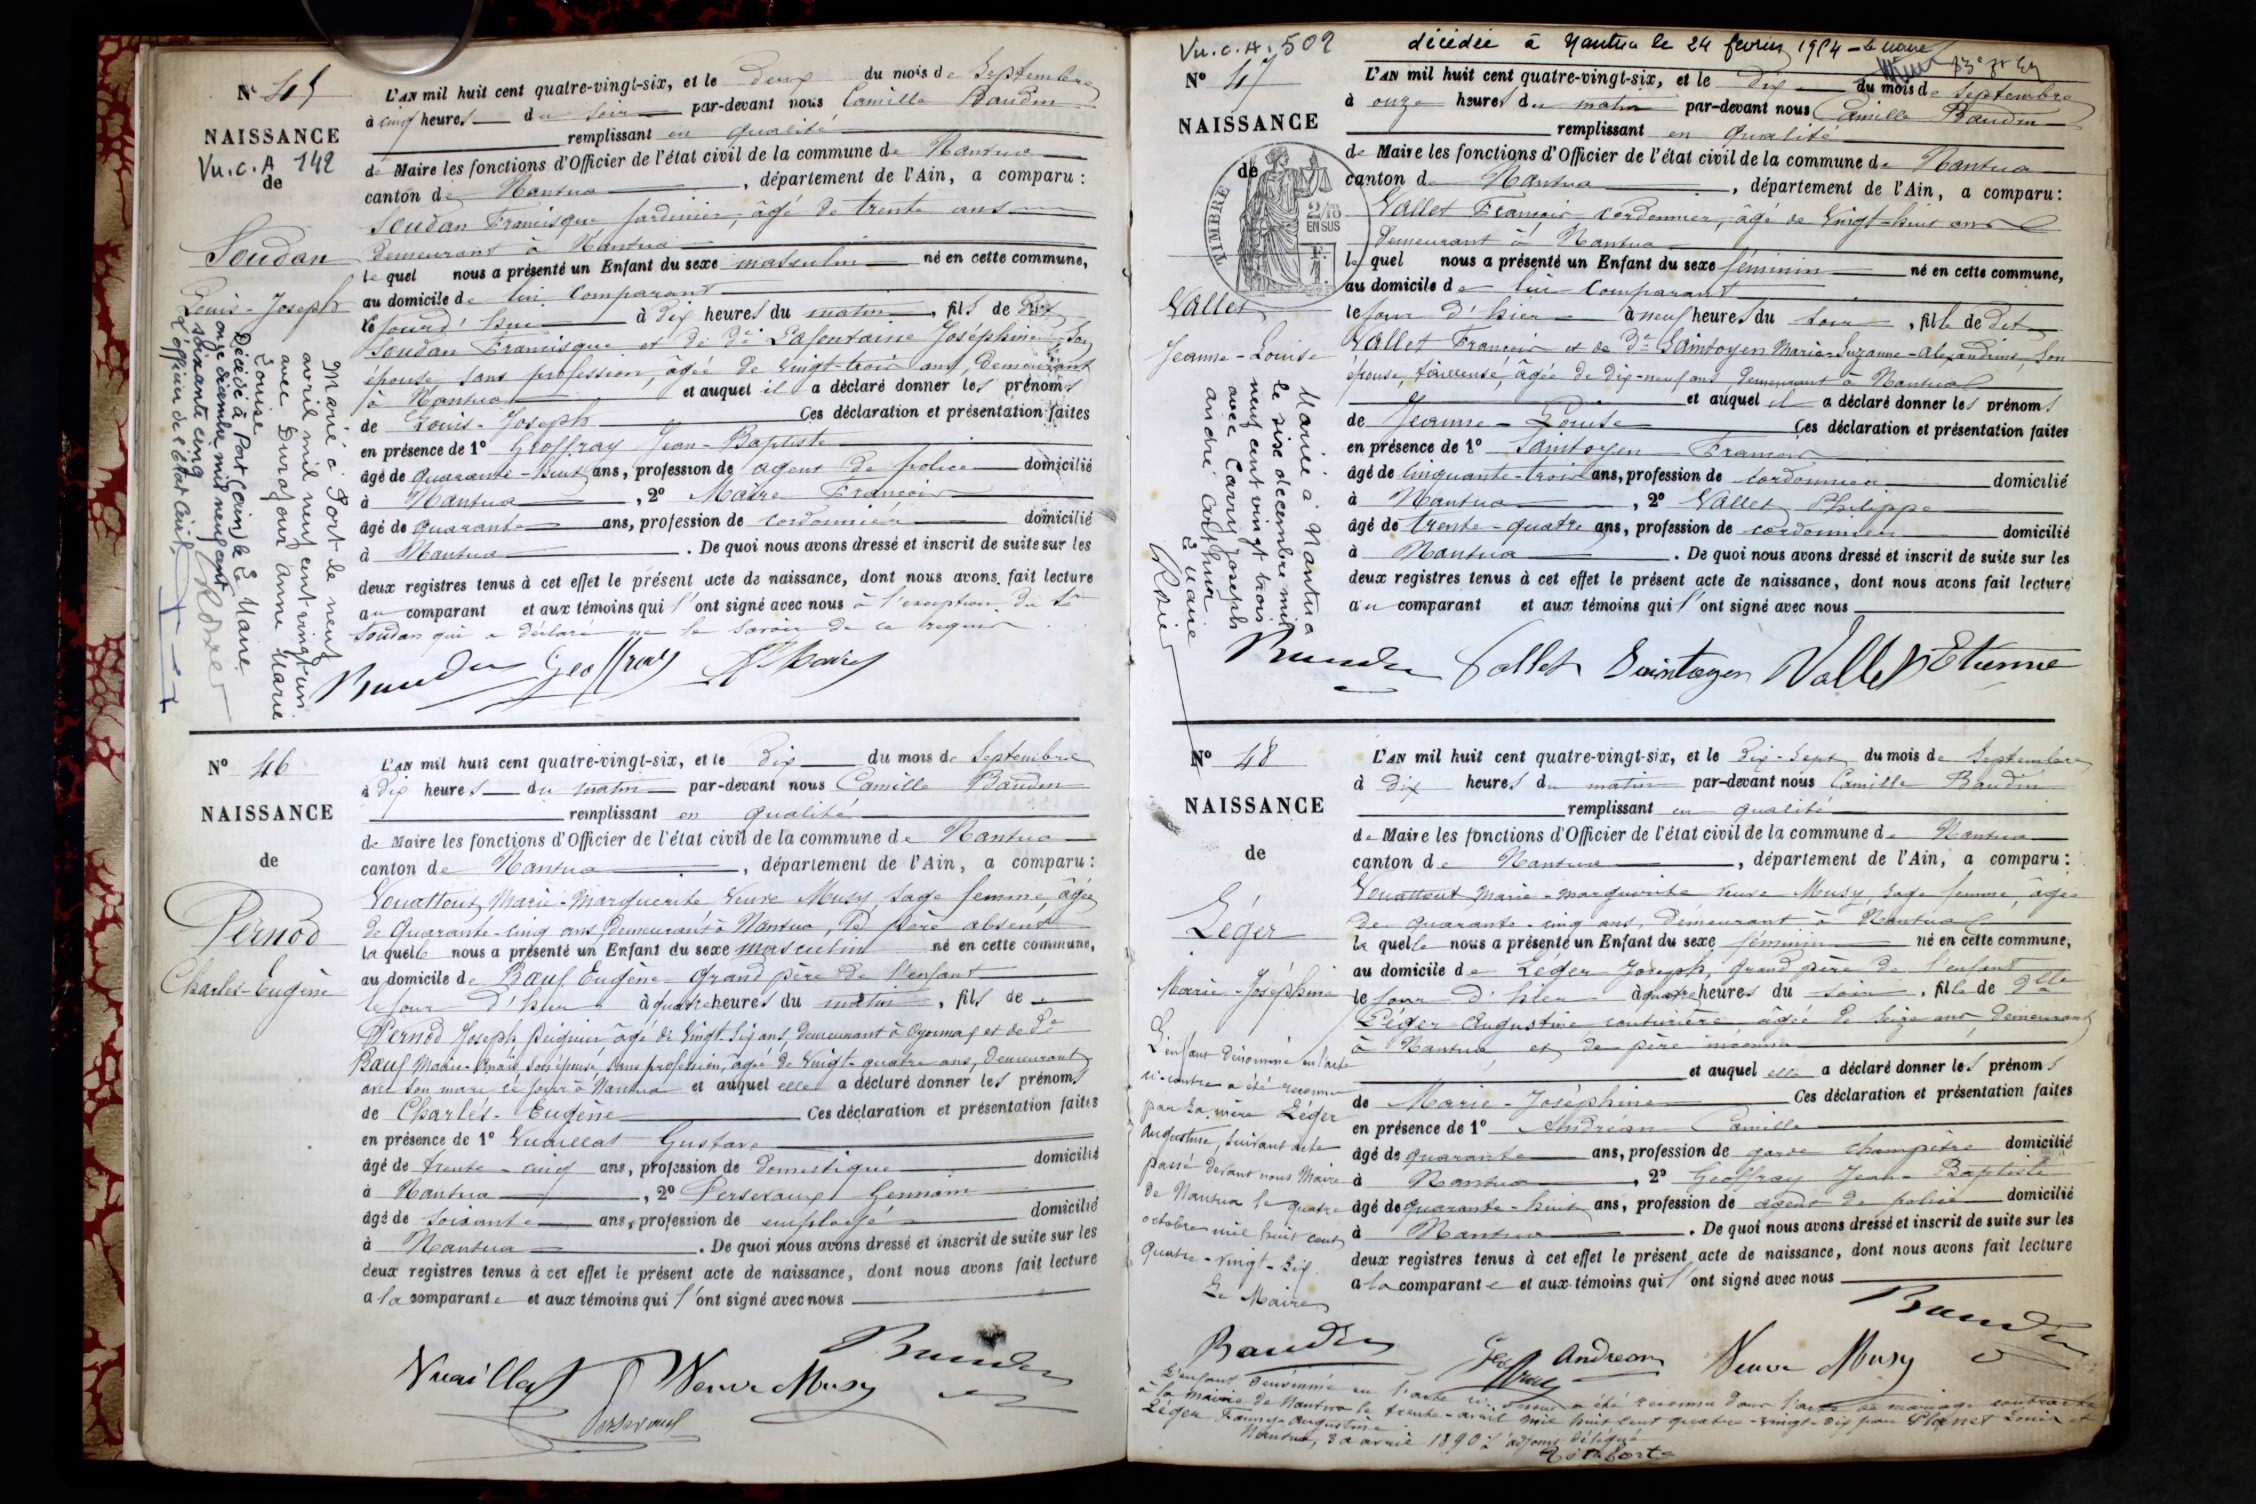 N° 45
NAISSANCE
Vu. C. A 142
de
Soudan
Louis-Joseph
Marié à Port le neuf
avril mil neuf cent vingt un
avec Durafour Anne Marie
Louise Le Maire
Décédé à Port (Ain) le
onze décembre mil neuf cent
soixante cinq
L'officier de l'Etat Civil
L'AN mil huit cent quatre-vingt-six, et le deux du mois de Septembre
à cinq heures du soir par-devant nous Camille Baudin
remplissant en qualité
de Maire les fonctions d'Officier de l'état civil de la commune de Nantua
canton de Nantua, département de l'Ain, a comparu :
Soudan Francisque Jardinier, âgé de trente ans
demeurant à Nantua
le quel nous a présenté un Enfant du sexe masculin né en cette commune,
au domicile de lui comparant
le jourd'hui à dix heures du matin, fils de dit
Soudan Francisque et de de Lafontaine Joséphine, son
épouse, sans profession, âgée de vingt-trois ans, demeurant
à Nantua et auquel il a déclaré donner les prénoms
de Louis-Joseph Ces déclaration et présentation faites
en présence de 1° Geoffray Jean-Baptiste
âgé de quarante-huit ans, profession de agent de police domicilié
à Nantua, 2° Maire François
âgé de quarante ans, profession de cordonnier domicilié
à Nantua. De quoi nous avons dressé et inscrit de suite sur les
deux registres tenus à cet effet le présent acte de naissance, dont nous avons fait lecture
au comparant et aux témoins qui l'ont signé avec nous à l'exception du Sr
Soudan qui a déclaré ne le savoir de ce requis
Baudin Geoffray
N° 46
NAISSANCE
de
Pernod
Charles-Eugène
L'AN mil huit cent quatre-vingt-six, et le dix du mois de Septembre
à dix heures du matin par-devant nous Camille Baudin
remplissant en qualité
de Maire les fonctions d'Officier de l'état civil de la commune de Nantua
canton de Nantua, département de l'Ain, a comparu :
Vouattout Marie-Marguerite Veuve Musy, sage femme, âgée
de quarante-cinq ans, demeurant à Nantua, le père absent
la quelle nous a présenté un Enfant du sexe masculin né en cette commune,
au domicile de Bauf Eugène grand père de l'enfant
le jour d'hier à quatre heures du matin, fils de
Pernod Joseph peignier âgé de vingt-six ans, demeurant à Oyonnax et de de
Bauf Marie-Anaïs, son épouse, sans profession, âgée de vingt-quatre ans, demeurant
avec son mari ce jour à Nantua et auquel elle a déclaré donner les prénoms
de Charles-Eugène Ces déclaration et présentation faites
en présence de 1° Vuaillat Gustave
âgé de trente-cinq ans, profession de domestique domicilié
à Nantua, 2° Persevaux Germain
âgé de soixante ans, profession de employé domicilié
à Nantua. De quoi nous avons dressé et inscrit de suite sur les
deux registres tenus à cet effet le présent acte de naissance, dont nous avons fait lecture
a la comparante et aux témoins qui l'ont signé avec nous
Vuaillat Veuve Musy Baudin
Vu. C. A. 502
décédée à Nantua le 24 février 1954 - le maire
N° 47
NAISSANCE
de
TIMBRE
2/10 EN SUS
Vallet
Jeanne-Louise
Mariée à Nantua
le seize décembre mil
neuf cent vingt trois
avec Carry Joseph
André Arthur
Le Maire
L'AN mil huit cent quatre-vingt-six, et le dix du mois de Septembre
à onze heures du matin par-devant nous Camille Baudin
remplissant en qualité
de Maire les fonctions d'Officier de l'état civil de la commune de Nantua
canton de Nantua, département de l'Ain, a comparu :
Vallet François cordonnier, âgé de vingt-huit ans
demeurant à Nantua
le quel nous a présenté un Enfant du sexe féminin né en cette commune,
au domicile de lui comparant
le jour d'hier à neuf heures du soir, fille de dit
Vallet François et de de Saintoyen Marie-Suzanne-Alexandrine, son
épouse, tailleuse, âgée de dix-neuf ans, demeurant à Nantua
et auquel il a déclaré donner les prénoms
de Jeanne-Louise Ces déclaration et présentation faites
en présence de 1° Saintoyen François
âgé de cinquante-trois ans, profession de cordonnier domicilié
à Nantua, 2° Vallet Philippe
âgé de trente-quatre ans, profession de cordonnier domicilié
à Nantua. De quoi nous avons dressé et inscrit de suite sur les
deux registres tenus à cet effet le présent acte de naissance, dont nous avons fait lecture
au comparant et aux témoins qui l'ont signé avec nous
Baudin Vallet Saintoyen Vallet Etienne
N° 48
NAISSANCE
de
Léger
Marie-Joséphine
L'enfant dénommé en l'acte
ci-contre a été reconnu
par sa mère Léger
Augustine, suivant acte
passé devant nous Maire
de Nantua le quatre
octobre mil huit cent
quatre-vingt-six.
Le Maire
Baudin
L'AN mil huit cent quatre-vingt-six, et le dix-sept du mois de Septembre
à dix heures du matin par-devant nous Camille Baudin
remplissant en qualité
de Maire les fonctions d'Officier de l'état civil de la commune de Nantua
canton de Nantua, département de l'Ain, a comparu :
Vouattout Marie-Marguerite veuve Musy, sage femme, âgée
de quarante-cinq ans, demeurant à Nantua
la quelle nous a présenté un Enfant du sexe féminin né en cette commune,
au domicile de Léger Joseph, grand père de l'enfant
le jour d'hier à quatre heures du soir, fille de Dlle
Léger Augustine couturière âgée de seize ans demeurant
à Nantua, et de père inconnu
et auquel elle a déclaré donner les prénoms
de Marie-Joséphine Ces déclaration et présentation faites
en présence de 1° Andréan Camille
âgé de quarante ans, profession de garde champêtre domicilié
à Nantua, 2° Geoffray Jean-Baptiste
âgé de quarante-huit ans, profession de agent de police domicilié
à Nantua. De quoi nous avons dressé et inscrit de suite sur les
deux registres tenus à cet effet le présent acte de naissance, dont nous avons fait lecture
a la comparante et aux témoins qui l'ont signé avec nous
Baudin
Andrean Veuve Musy
L'enfant dénommé en l'acte ci-dessus a été reconnu dans l'acte de mariage contracté
à la mairie de Nantua le trente-avril mil huit cent quatre-vingt-dix par Planet Louis et
Léger Fanny-Augustine
Nantua, 30 avril 1890 L'adjoint délégué